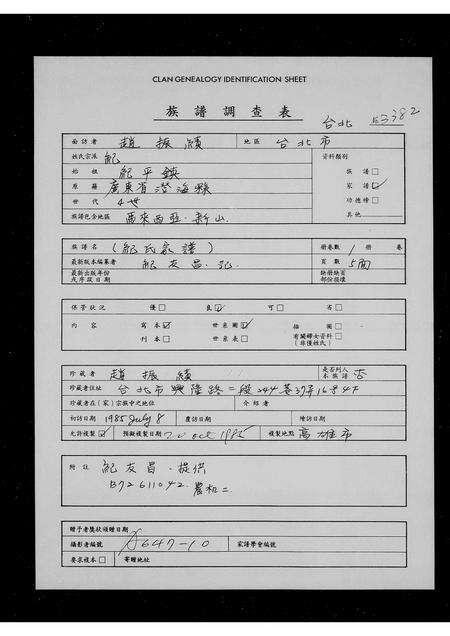 CLAN GENEALOGY IDENTIFICATION SHEET
族譜調查表
台北 5382
面訪者 趙振績 地區 台北市
姓氏宗派 紀 資料類別
始祖 紀平鎮 族譜□
原籍 廣東省澄海縣 家譜☑
世代 4世 功德榜□
族譜包含地區 馬來西亞.新山 其他
族譜名 (紀氏家譜) 冊卷數 1 冊 卷
最新版本編纂者 紀友昌.記 頁數 5面
最新出版年份 缺冊缺頁
及序跋日期 部份損壞
保管狀況 優□ 良☑ 可□ 劣□
內容 寫本☑ 世系圖☑ 插圖□
刊本□ 世系表□ 有關婦女資料□
(非僅姓氏)
珍藏者 趙振績 是否列入本族譜 否
珍藏者住址 台北市興隆路二段244巷37弄16号4F
珍藏者在(家)宗族中之地位 介紹者
初訪日期 1985 July 8 覆訪日期 續訪日期
允許複製☑ 預擬複製日期 20 oct 1985 複製地點 高雄市
附註 紀友昌.提供
B72611042.農和二
贈予者獎狀頒贈日期
攝影者編號 A647-10 家譜學會編號
要求複本□ 寄贈地址